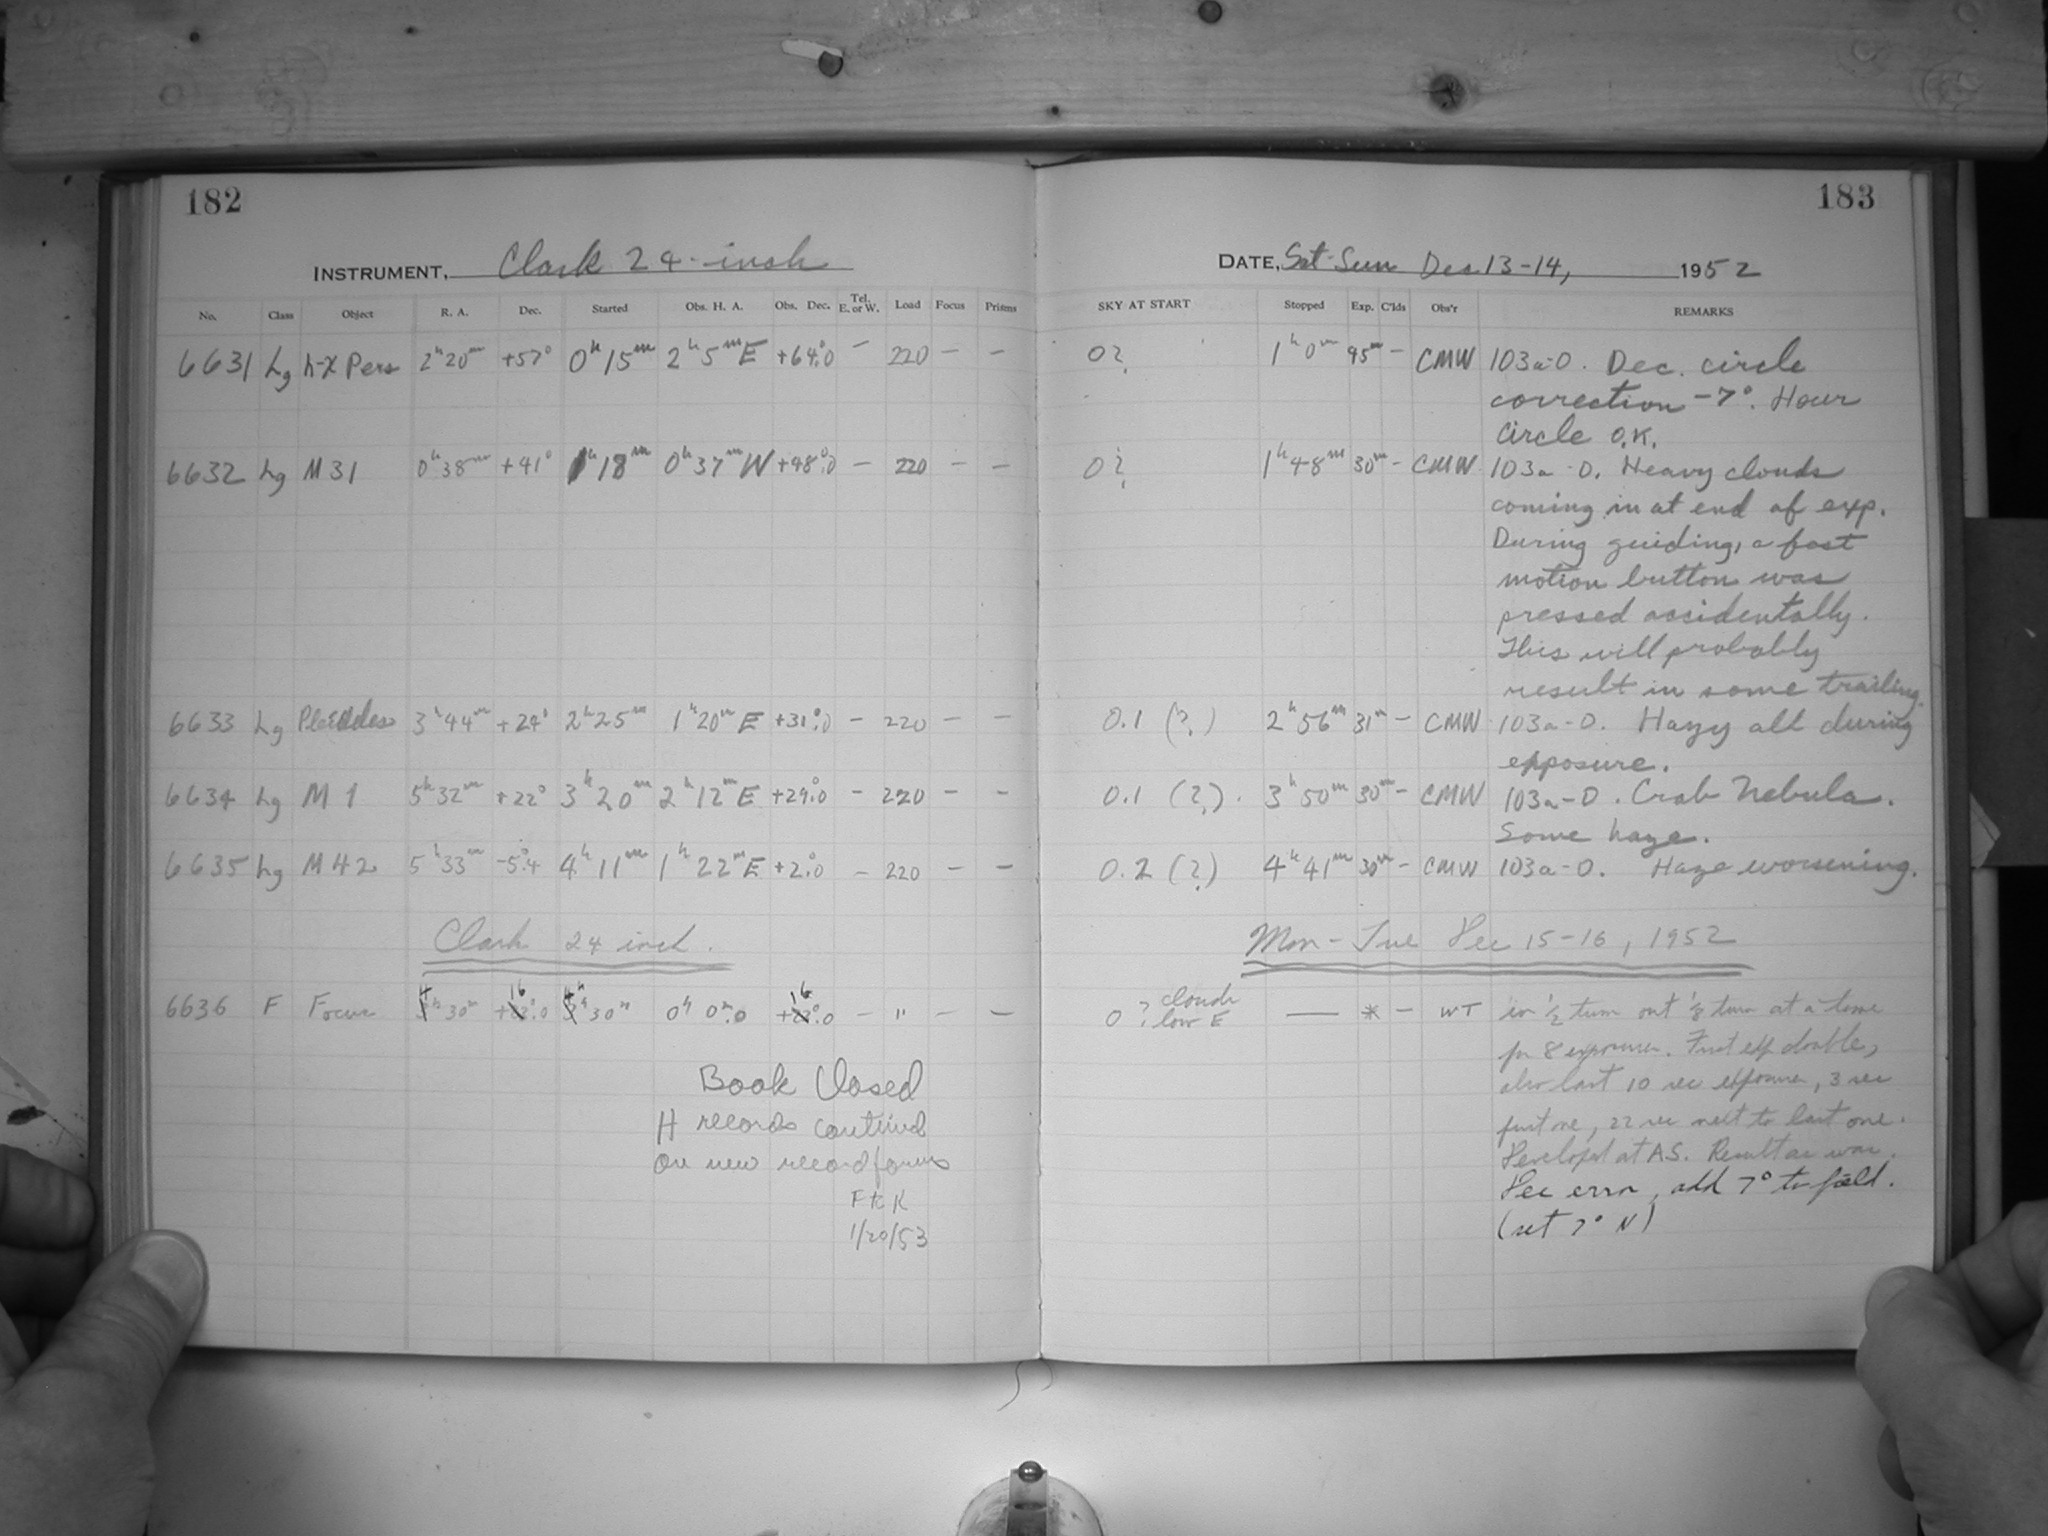 182
183
INSTRUMENT, Clark 24-inch
DATE, Sat-Sun Dec. 13-14, 1952
No. Class Object R. A. Dec. Started Obs. H. A. Obs. Dec. Tel. E. or W. Load Focus Prisms SKY AT START Stopped Exp. C'lds Obs'r REMARKS
6631 Lg h-χ Pers 2h20m +57° 0h15m 2h5mE +64.°0 - 220 - - 0? 1h0m 45m - CMW 103a-O. Dec. circle
correction -7°. Hour
Circle O.K.
6632 Lg M31 0h38m +41° 1h18m 0h37mW +48.°0 - 220 - - 0? 1h48m 30m - CMW 103a-O. Heavy clouds
coming in at end of exp.
During guiding, a fast
motion button was
pressed accidentally.
This will probably
result in some trailing.
6633 Lg Pleiades 3h44m +24° 2h25m 1h20mE +31.°0 - 220 - - 0.1 (?) 2h56m 31m - CMW 103a-O. Hazy all during
exposure.
6634 Lg M1 5h32m +22° 3h20m 2h12mE +29.°0 - 220 - - 0.1 (?). 3h50m 30m - CMW 103a-O. Crab Nebula.
Some haze.
6635 Lg M42 5h33m -5.°4 4h11m 1h22mE +2.°0 - 220 - - 0.2 (?) 4h41m 30m - CMW 103a-O. Haze worsening.
Clark 24 inch.
Mon-Tue Dec 15-16, 1952
6636 F Focus 4h30m +16.°0 4h30m 0h0m.0 +16.°0 - " - - 0? clouds low E — * - WT in ½ turn out ⅛ turn at a time
for 8 exposures. First exp double,
also last 10 sec exposure, 3 sec
first one, 22 sec next to last one.
Developed at A.S. Result as was.
Dec error, add 7° to field.
(set 7° N)
Book Closed
H records continued
on new record forms
1/20/53